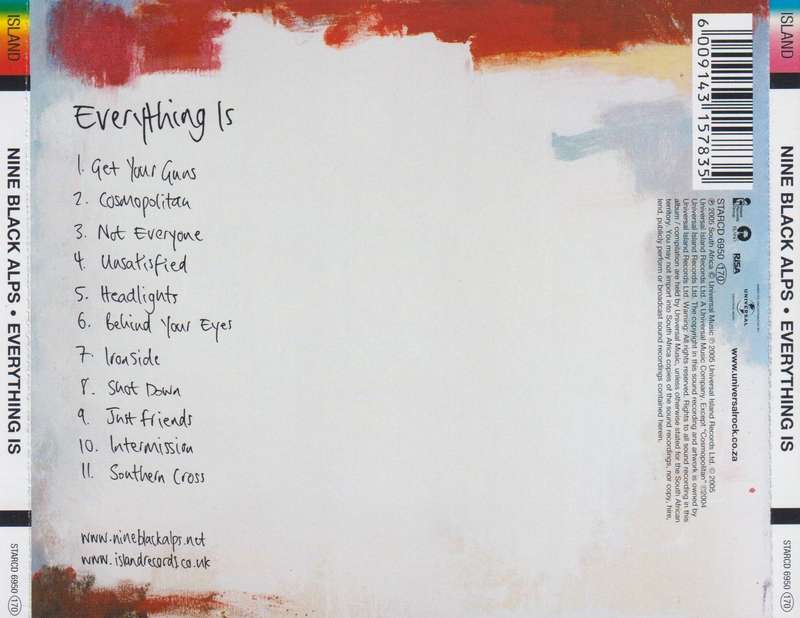 ISLAND
NINE BLACK ALPS • EVERYTHING IS
STARCD 6950 170
Everything Is
1. Get Your Guns
2. Cosmopolitan
3. Not Everyone
4. Unsatisfied
5. Headlights
6. Behind Your Eyes
7. Ironside
8. Shot Down
9. Just friends
10. Intermission
11. Southern Cross
www.nineblackalps.net
www.islandrecords.co.uk
6 009143 157835
RiSA
UNIVERSAL
www.universalrock.co.za
STARCD 6950 170
℗ 2005 South Africa © Universal Music ℗ 2005 Universal Island Records Ltd. © 2005
Universal Island Records Ltd. A Universal Music Company. Except "Cosmopolitan" ℗2004
Universal Island Records Ltd. The copyright in this sound recording and artwork is owned by
Universal Island Records Ltd. Warning: All rights reserved. Rights to all sound recording in this
album / compilation are held by Universal Music, unless otherwise stated for the South African
territory. You may not import into South Africa copies of the sound recordings, nor copy, hire,
lend, publicly perform or broadcast sound recordings contained herein.
ISLAND
NINE BLACK ALPS • EVERYTHING IS
STARCD 6950 170